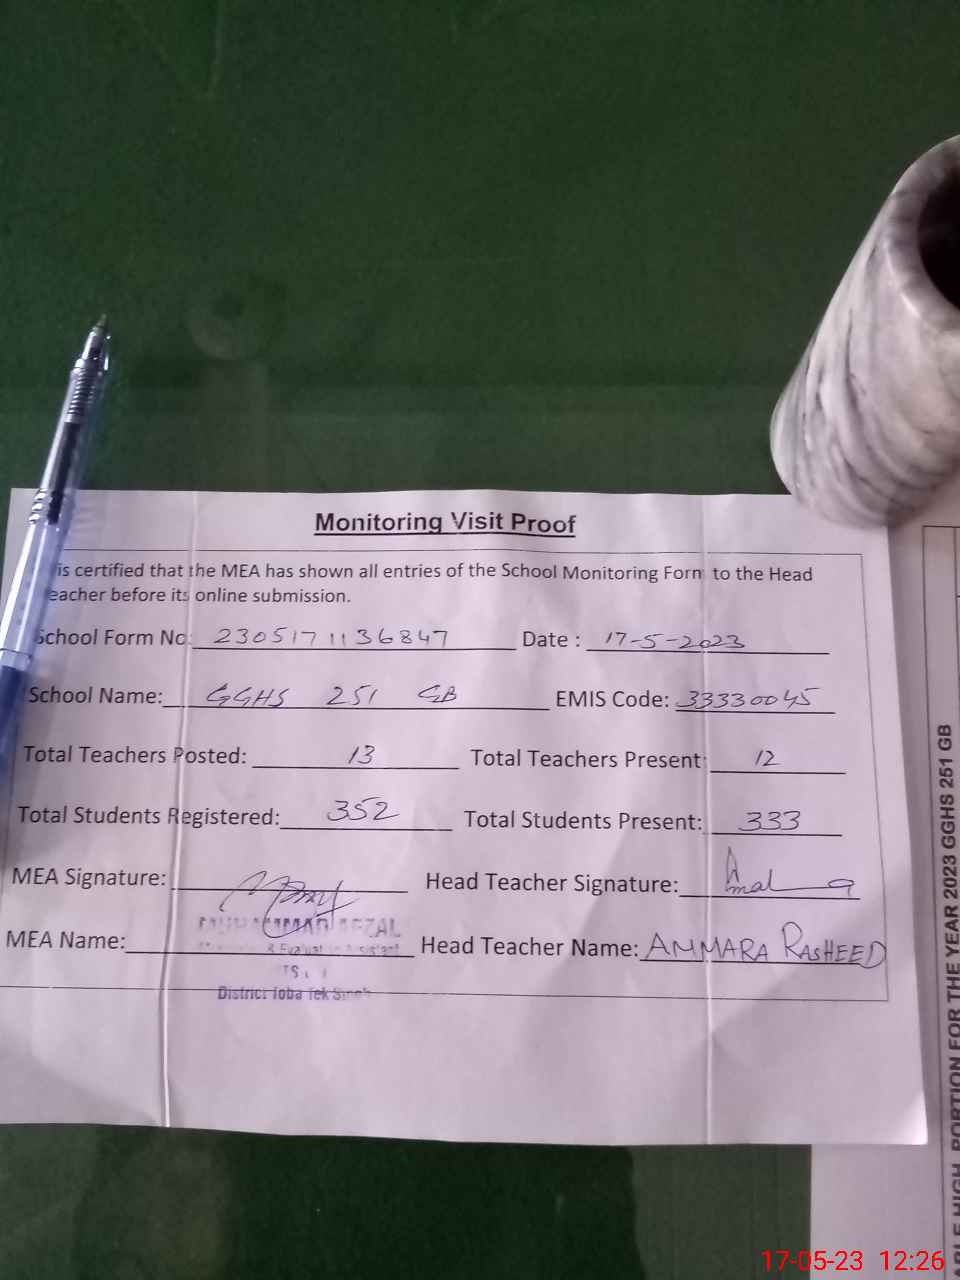 Monitoring Visit Proof
is certified that the MEA has shown all entries of the School Monitoring Form to the Head
eacher before its online submission.
School Form No: 2305171136847 Date : 17-5-2023
School Name: GGHS 251 GB EMIS Code: 33330045
Total Teachers Posted: 13 Total Teachers Present: 12
Total Students Registered: 352 Total Students Present: 333
MEA Signature: Head Teacher Signature:
MUHAMMAD AFZAL
MEA Name: Head Teacher Name: AMMARA RASHEED
& Evaluation Assistant
District Toba Tek Singh
HIGH PORTION FOR THE YEAR 2023 GGHS 251 GB
17-05-23 12:26